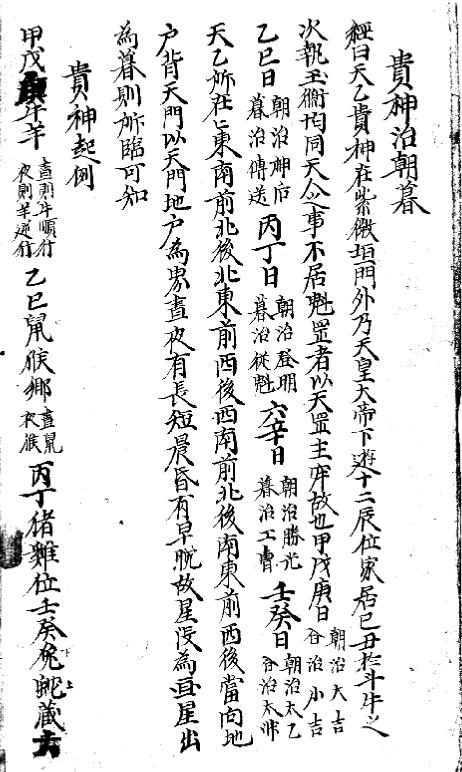 貴神治朝暮
經曰天乙貴神在紫微垣門外乃天皇大帝下遊十二辰位家居己丑於斗牛之
次執玉衡均同天人之事不居魁罡者以天罡主牢故也甲戊庚日朝治大吉谷治小吉
乙巳日朝治神后暮治傳送丙丁日朝治登明暮治從魁六辛日朝治勝光暮治工曹壬癸日朝治太乙谷治太冲
天乙所在之東南前北後北東前西後西南前北後南東前西後當向地
户背天門以天門地户為界晝夜有長短晨昏有早晚故星没為晝星出
為暮則所臨可知
貴神起例
甲戊牛羊晝則牛順行夜則羊逆行乙巳鼠猴鄉晝鼠夜猴丙丁猪雞位壬癸兔蛇藏六